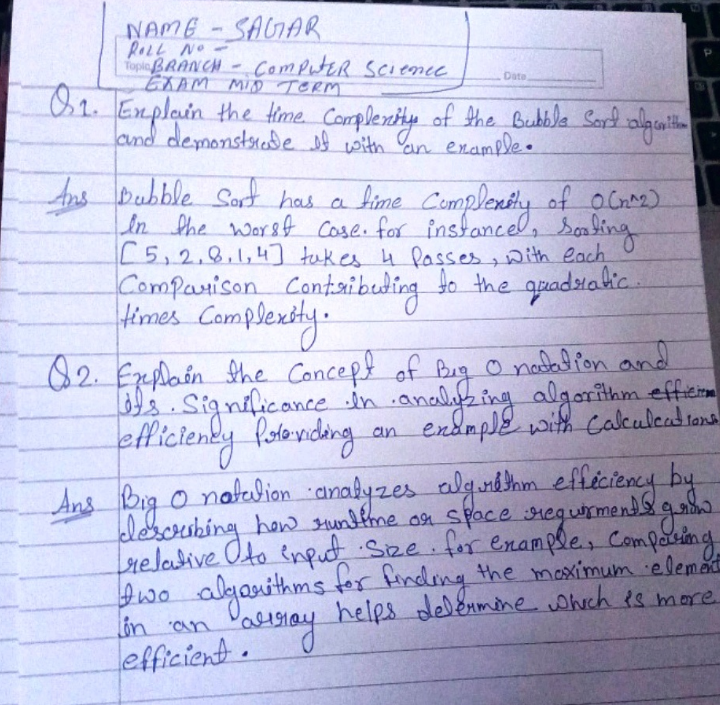 NAME - SAGAR
ROLL NO -
Topic BRANCH - COMPUTER Science
Date
EXAM MID TERM
Q1. Explain the time Complexity of the Bubble Sort algorithm
and demonstrate it with an example.
Ans Bubble Sort has a time Complexity of O(n^2)
in the worst Case. for instance, Sorting
[5, 2, 8, 1, 4] takes 4 Passes, with each
Comparison Contributing to the quadratic.
times Complexity.
Q2. Explain the Concept of Big O notation and
its. Significance in analyzing algorithm
efficiency Providing an example with Calculations
Ans Big O notation analyzes algorithm efficiency by
describing how runtime or space requirments grow
relative to input Size. for example, Comparing
two algorithms for finding the maximum element
in an array helps determine which is more
efficient.